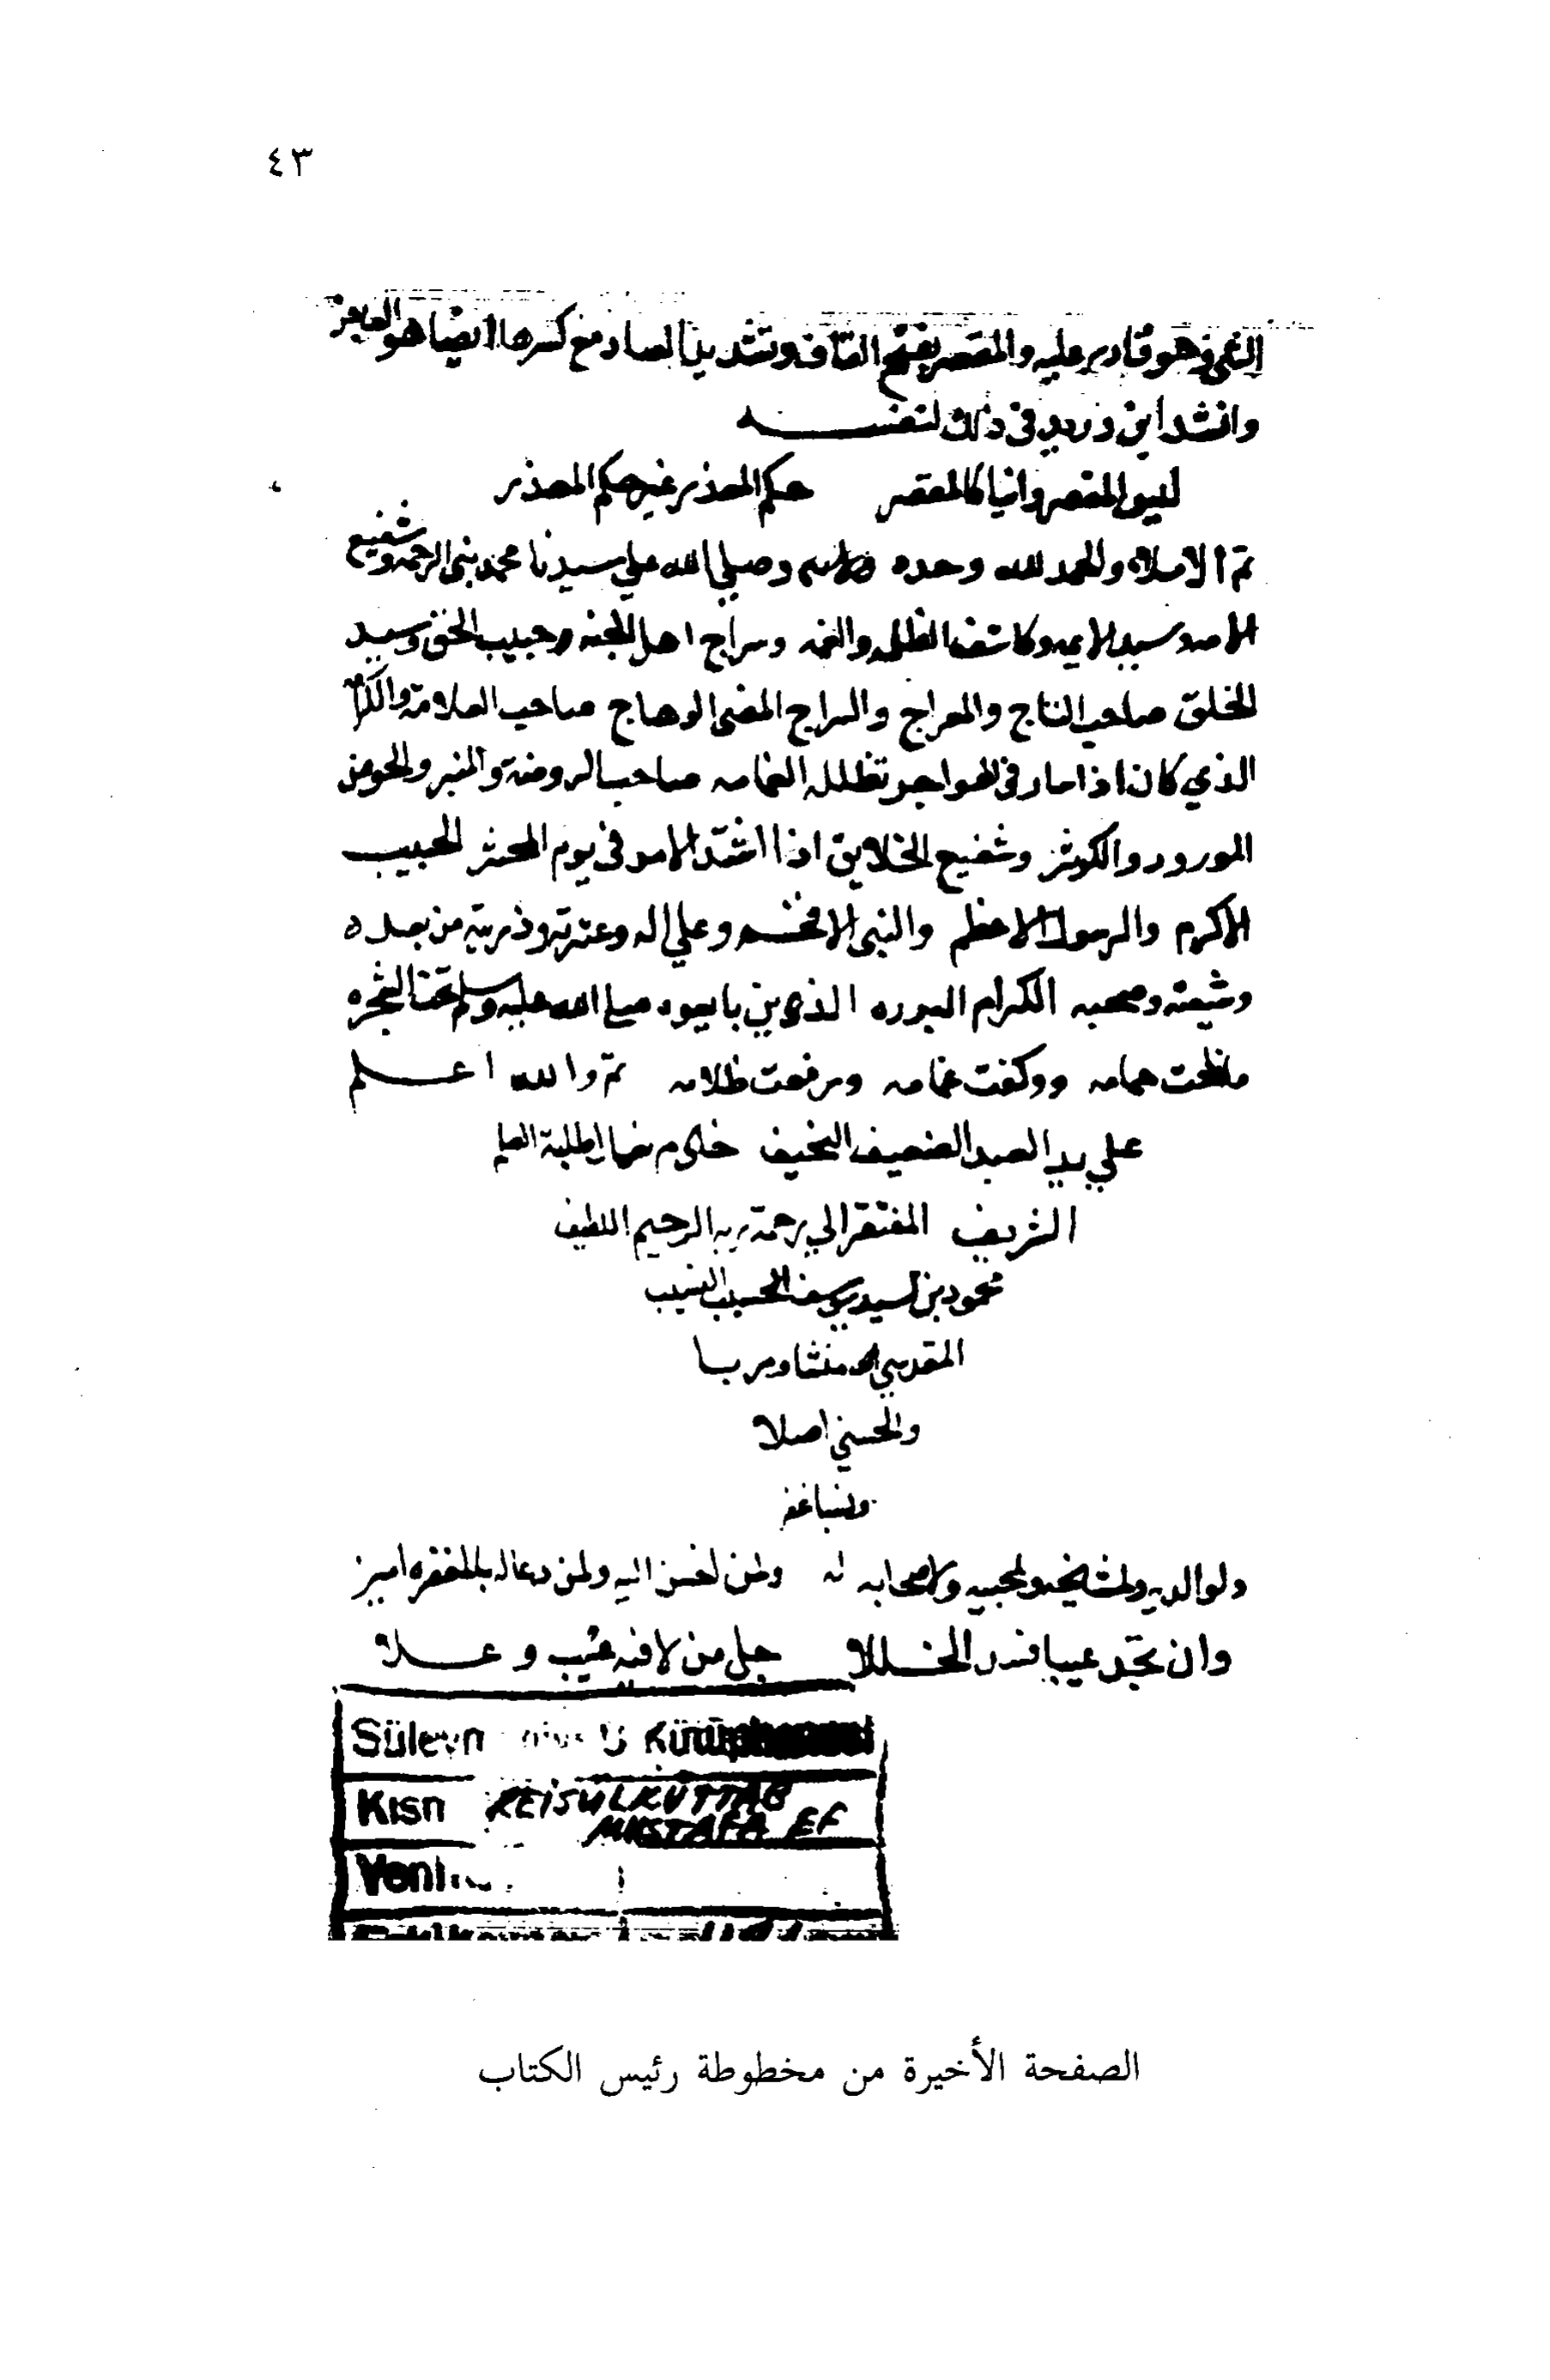 ٤٣
وهو قادر عليه والمقصر بفتح القاف وتشديد الصاد مع كسرها ايضا هو العاجز
وانشد ابن دريد في ذلك لنفسه
ليس المقصر وانيا كالمقصر حكم المعذر غير حكم المعذر
تم الاملاء والحمد لله وحده وصلي الله علي سيدنا محمد نبي الرحمه وشفيع
الامه وسيد الايمه وكاشف الظلمه والغمه وسراج اهل الجنه وحبيب الحق وسيد
الخلق صاحب التاج والمعراج والسراج المضي الوهاج صاحب العلامة والكرامه
الذي كان اذا سار في الهواجر تظلله الغمامه صاحب الروضة والمنبر والحوض
المورود والكوثر وشفيع الخلايق اذا اشتد الامر في يوم المحشر الحبيب
الاكرم والرسول الاعظم والنبي الافخم وعلي اله وعترته وذريته من بعده
وشيعته وصحبه الكرام البرره الذين بايعوه صلى الله عليه وسلم تحت الشجره
ما ناحت حمامه ووكفت غمامه ورفعت ظلامه تم والله اعلم
علي يد العبد الضعيف النحيف خادم نعال طلبة العلم
الشريف المفتقر الي رحمة ربه الرحيم اللطيف
محمود بن السيد يوسف الحسيب النسيب
المقدسي منشا ومربا
والحسيني اصلا
ونسبا غفر
له ولوالديه ولمشايخه ولمحبيه ولاصحابه ولمن احسن اليه ولمن دعا له بالمغفره امين
وان تجد عيبا فسد الخللا جل من لا فيه عيب وعلا
Kütüphanesi
REİSÜLKÜTTAB
MUSTAFA EF
الصفحة الأخيرة من مخطوطة رئيس الكتاب